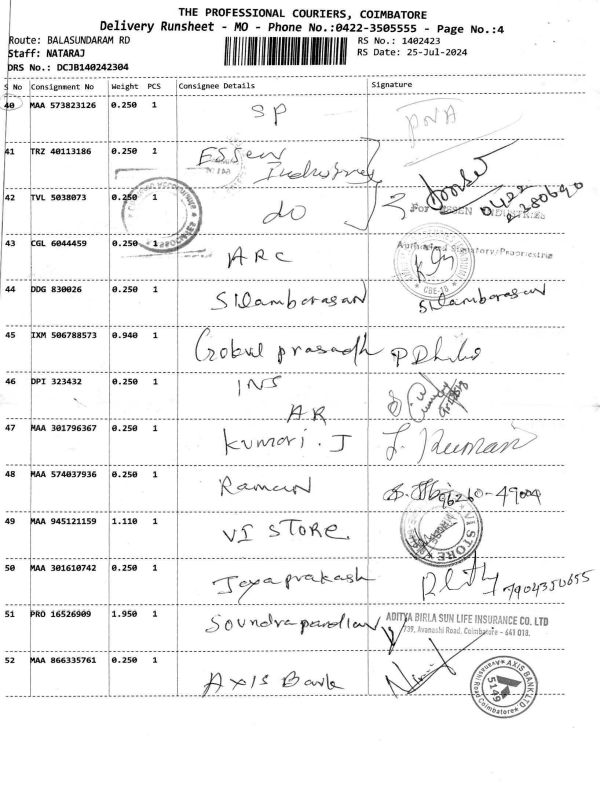 THE PROFESSIONAL COURIERS, COIMBATORE
Delivery Runsheet - MO - Phone No.:0422-3505555 - Page No.:4
Route: BALASUNDARAM RD RS No.: 1402423
Staff: NATARAJ RS Date: 25-Jul-2024
DRS No.: DCJB140242304
S No Consignment No Weight PCS Consignee Details Signature
40 MAA 573823126 0.250 1 SP
41 TRZ 40113186 0.250 1 ESSEN
Industries
42 TVL 5038073 0.250 1 do 0422
2280690
For ESSEN INDUSTRIES
43 CGL 6044459 0.250 1 ARC Authorised Signatory/Proprietrix
CBE-18
44 DDG 830026 0.250 1 Silambarasan Silambarasan
45 IXM 506788573 0.940 1 Gokul prasadh
46 DPI 323432 0.250 1 INS
AR
47 MAA 301796367 0.250 1 Kumari . J J. Kumari
48 MAA 574037936 0.250 1 Raman
49 MAA 945121159 1.110 1 VI STORE
VI STORE
50 MAA 301610742 0.250 1 Jayaprakash 7904350655
51 PRO 16526909 1.950 1 Soundrapandian ADITYA BIRLA SUN LIFE INSURANCE CO. LTD
739, Avanashi Road, Coimbatore - 641 018.
52 MAA 866335761 0.250 1 Axis Bank
AXIS BANK LTD
5149
Avanashi Road Coimbatore